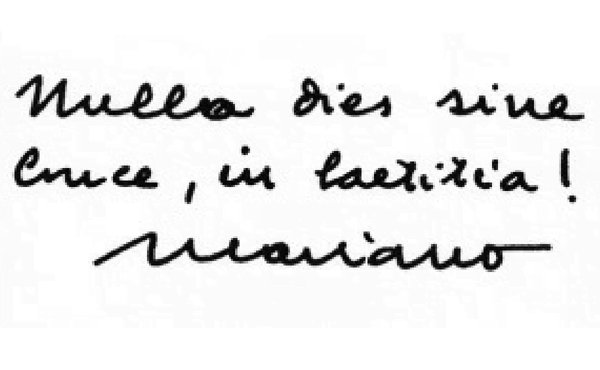 Nulla dies sine
Cruce, in laetitia!
Mariano